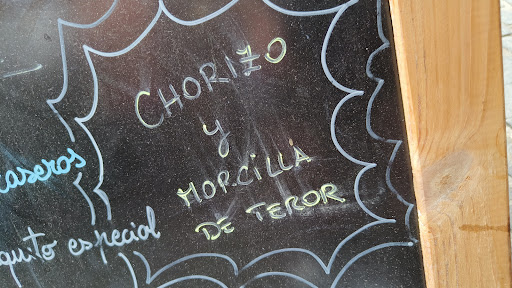 CHORIZO
y
MORCILLA
DE TEROR
caseros
quito especial